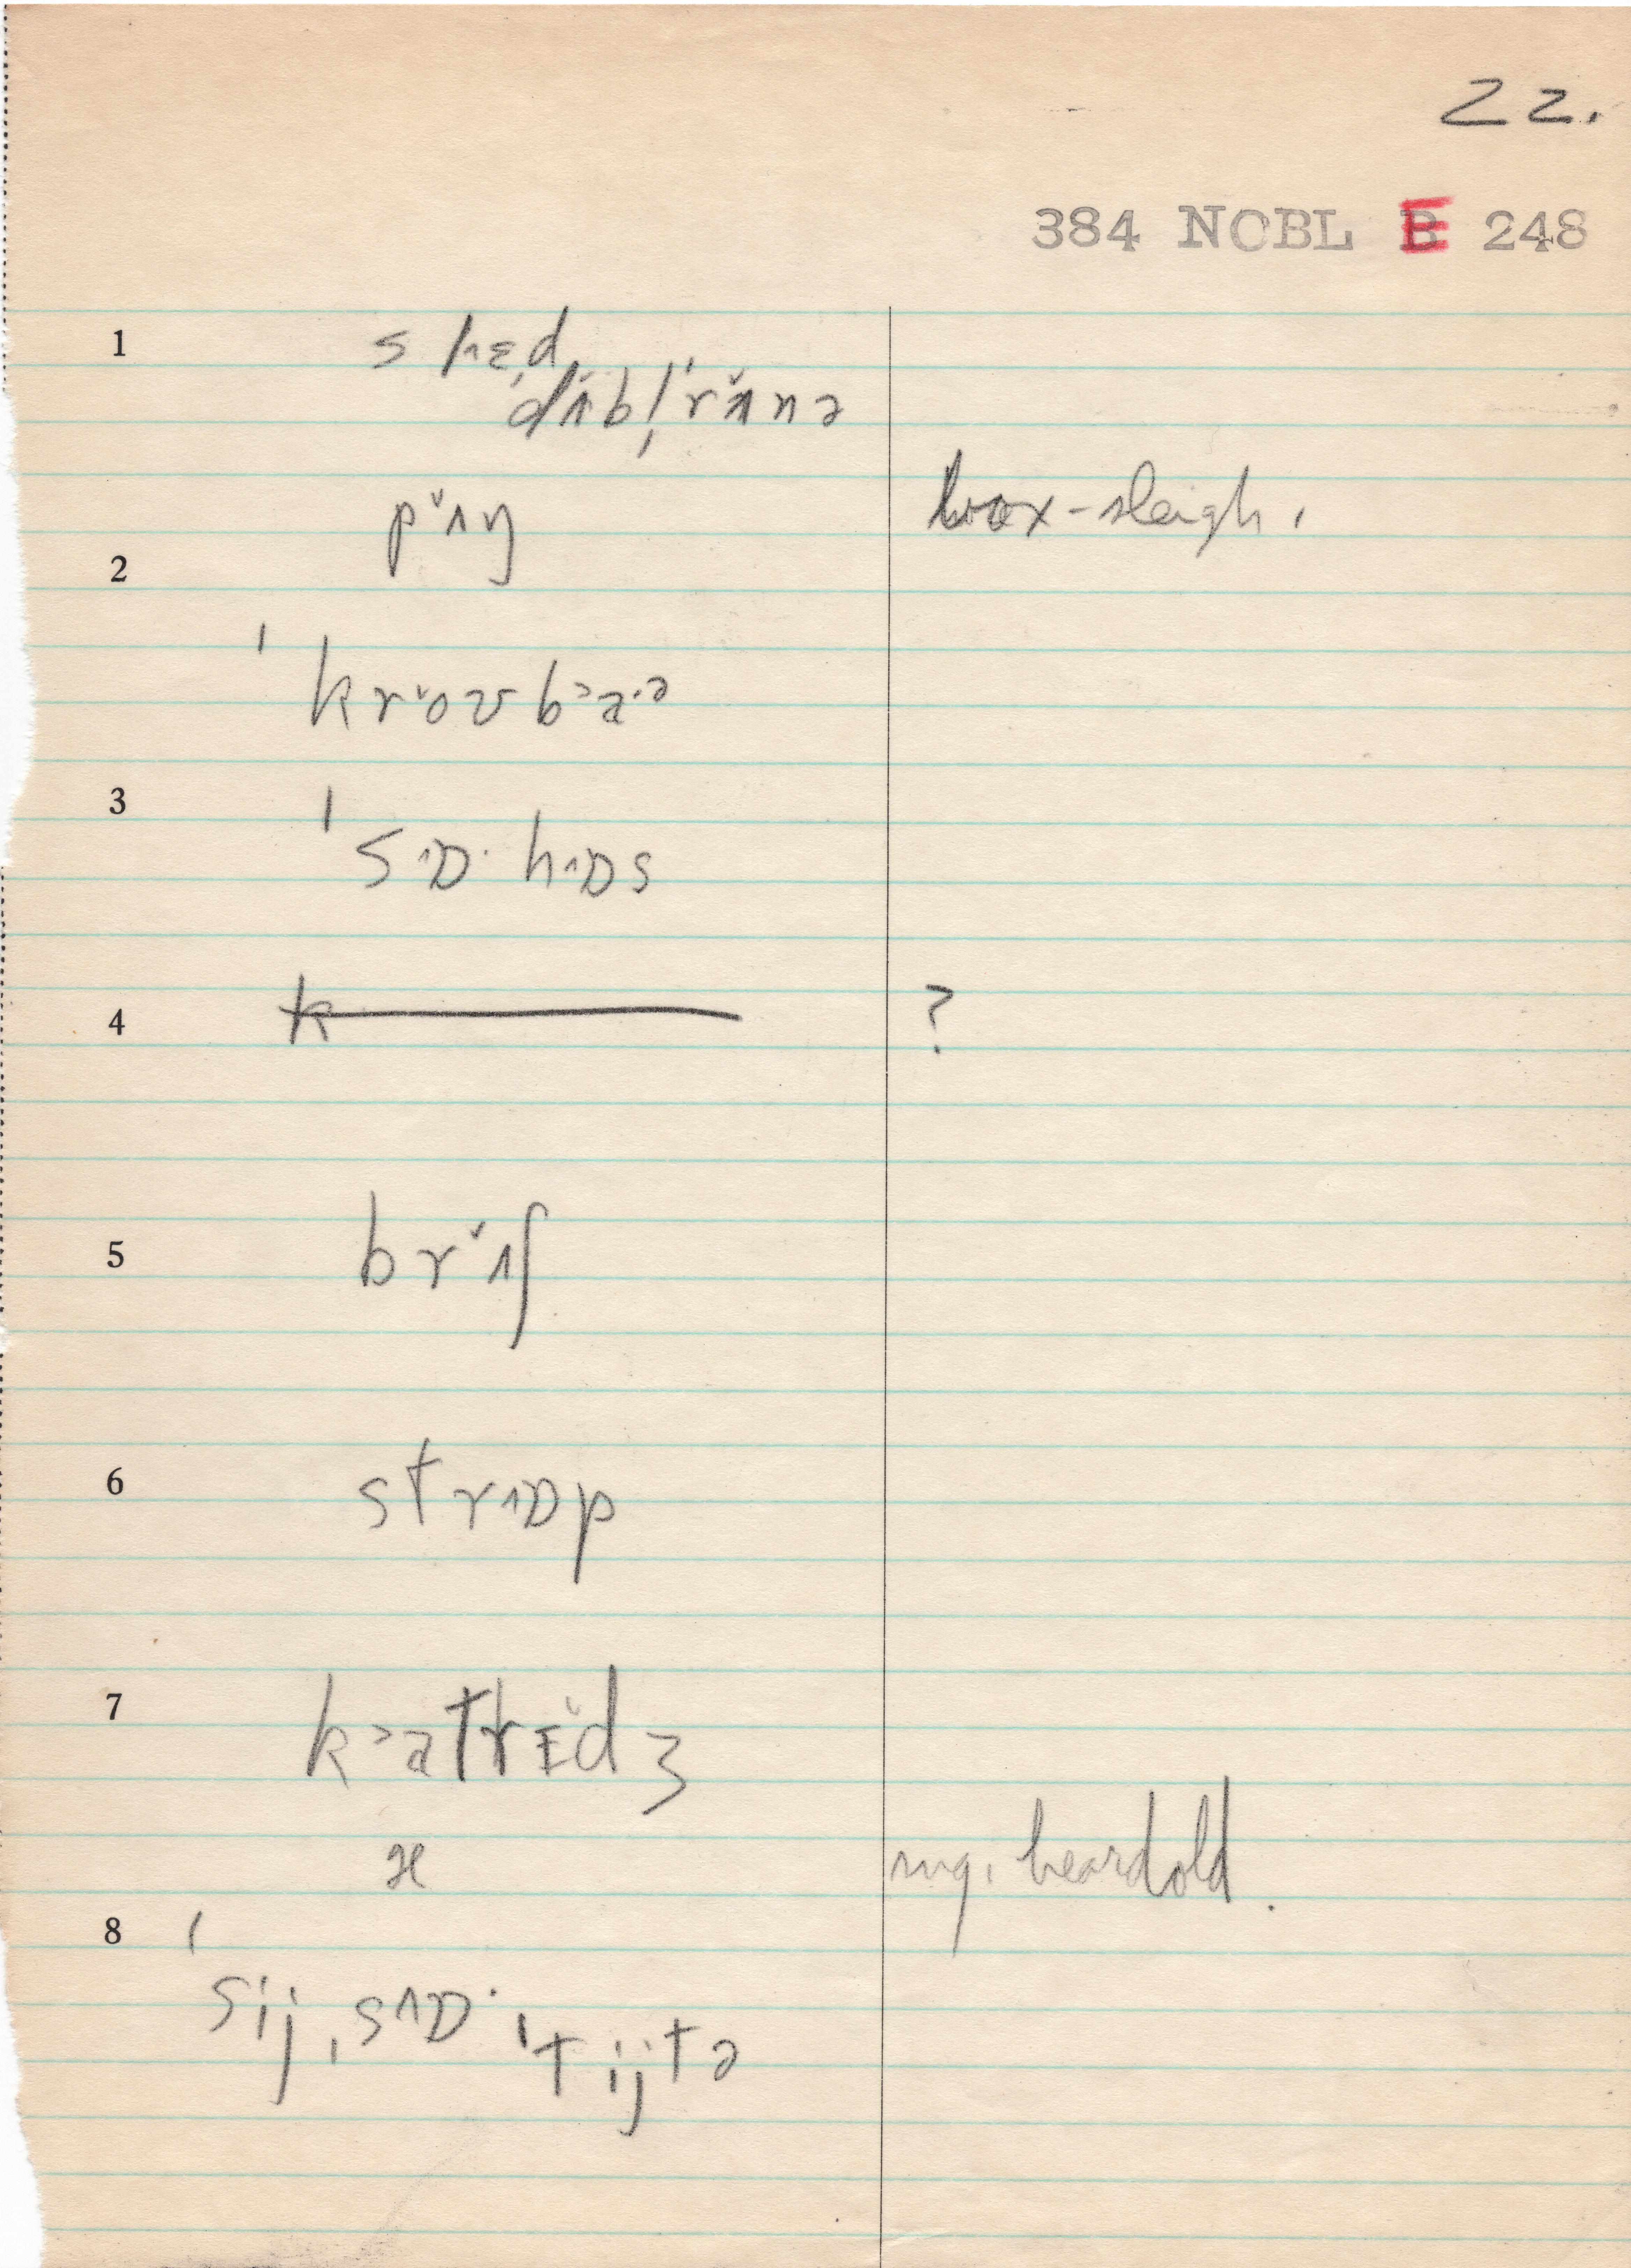 22.
384 NOBL E 248
1 slɛd
dʌ̌bl̩ˈrʌ̌nə
pʌ̌ŋ box-sleigh.
2
ˈkrˇoʊb˃a·ə
3 ˈs˄ɒ·h˄ɒs
4 k ?
5 brˇʌʃ
6 str˄ɒp
7 k˃atrɛ̌dʒ
x mg. heard old.
8 ˈsij ˌs˄ɒ· ˈtijtə